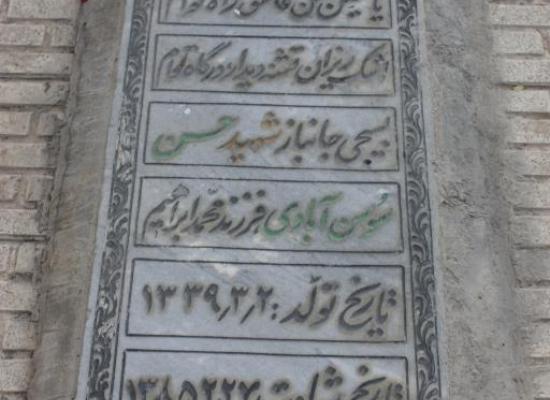 یا حسین من عاشق
اشک ریزان تشنه دیدار درگاه توام
بسیجی جانباز شهید حسن
سوسن آبادی فرزند محمد ابراهیم
تاریخ تولد: ۱۳۳۹٫۳٫۲
تاریخ شهادت